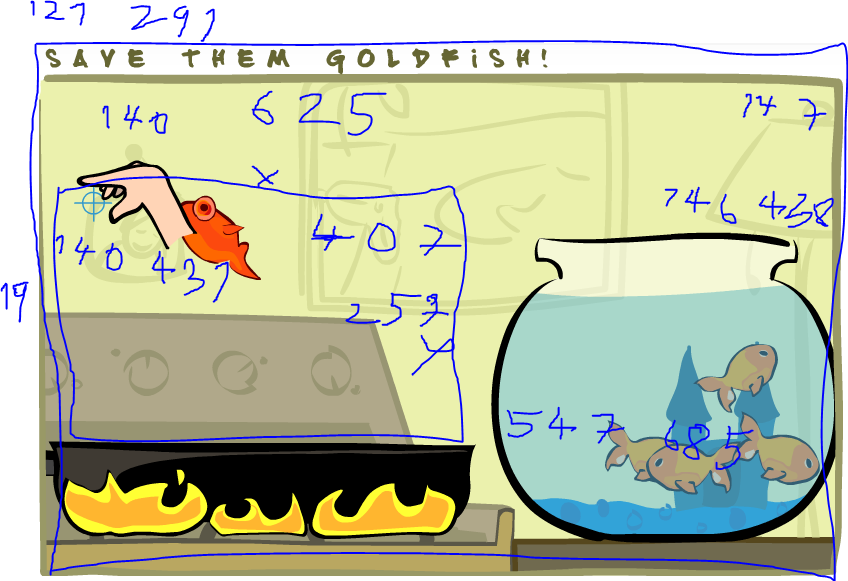 127 291
SAVE THEM GOLDFiSH!
140 625 147
x
746 438
140 437 407
19 257
547 685